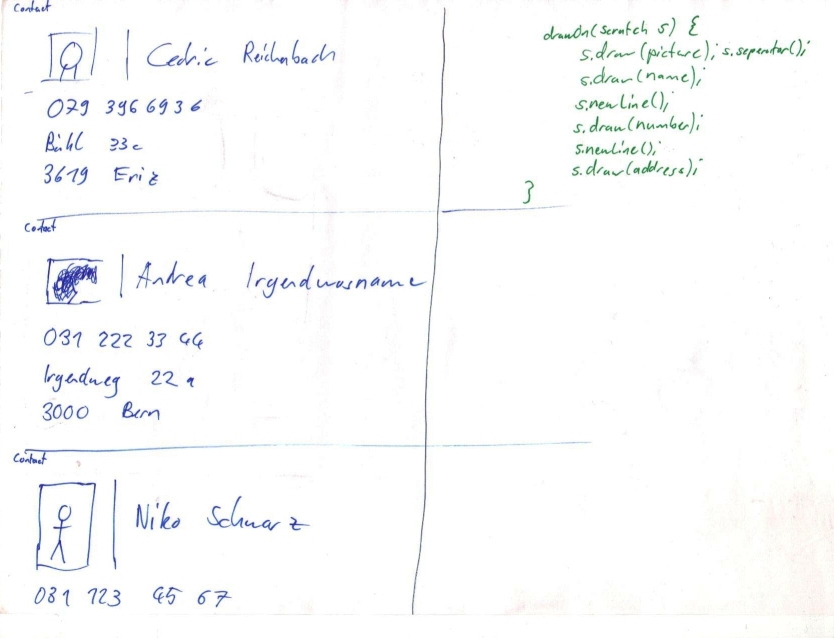 Contact
Cedric Reichenbach
079 396 69 36
Bühl 33c
3619 Eriz
Contact
Andrea Irgendwasname
031 222 33 44
Irgendweg 22a
3000 Bern
Contact
Niko Schwarz
031 123 45 67
drawOn(Scratch s) {
s.draw(picture); s.seperator();
s.draw(name);
s.newLine();
s.draw(number);
s.newLine();
s.draw(address);
}